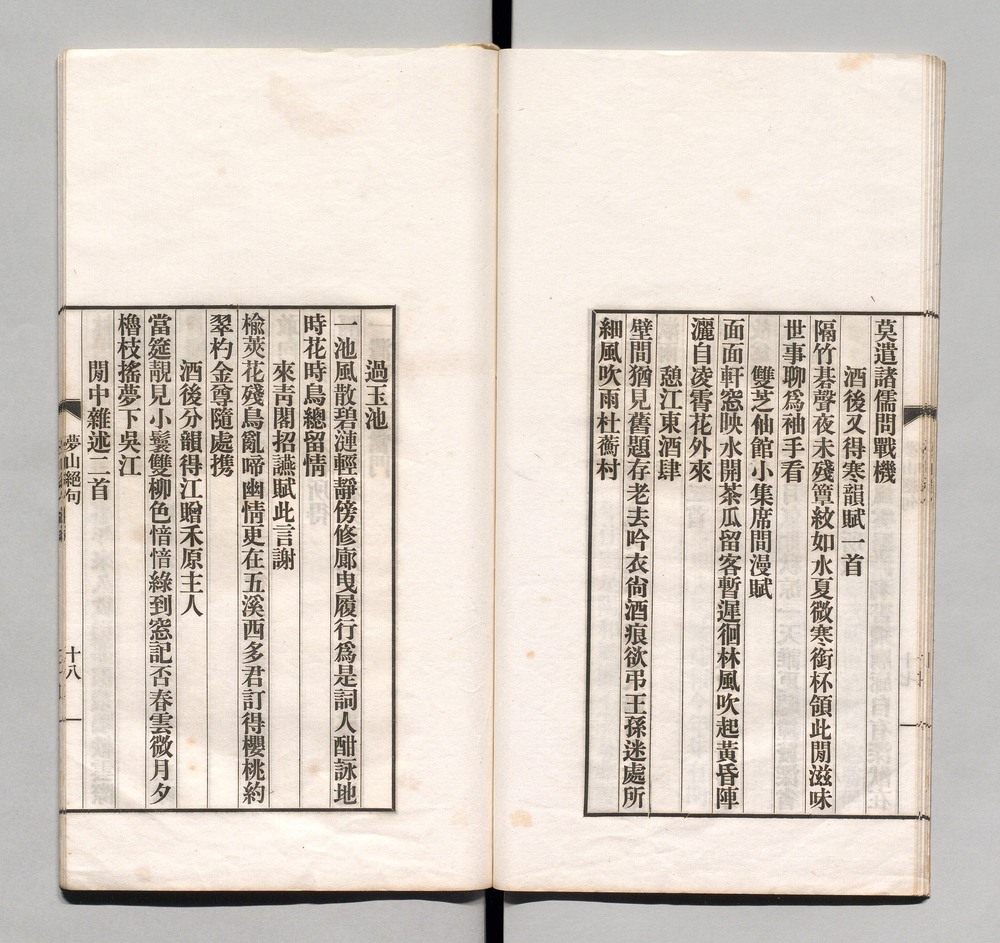 莫遣諸儒問戰機
酒後又得寒韻賦一首
隔竹碁聲夜未殘簟紋如水夏微寒銜杯領此閒滋味
世事聊爲袖手看
雙芝仙館小集席間漫賦
面面軒窓映水開茶瓜留客暫遲徊林風吹起黃昏陣
灑自凌霄花外來
憩江東酒肆
壁間猶見舊題存老去吟衣尙酒痕欲弔王孫迷處所
細風吹雨杜蘅村
過玉池
一池風散碧漣輕靜傍修廊曳履行爲是詞人酣詠地
時花時鳥總留情
來靑閣招讌賦此言謝
楡莢花殘鳥亂啼幽情更在五溪西多君訂得櫻桃約
翠杓金尊隨處携
酒後分韻得江贈禾原主人
當筵靚見小鬟雙柳色愔愔綠到窓記否春雲微月夕
櫓枝搖夢下吳江
閒中雜述二首
夢山絕句
十八